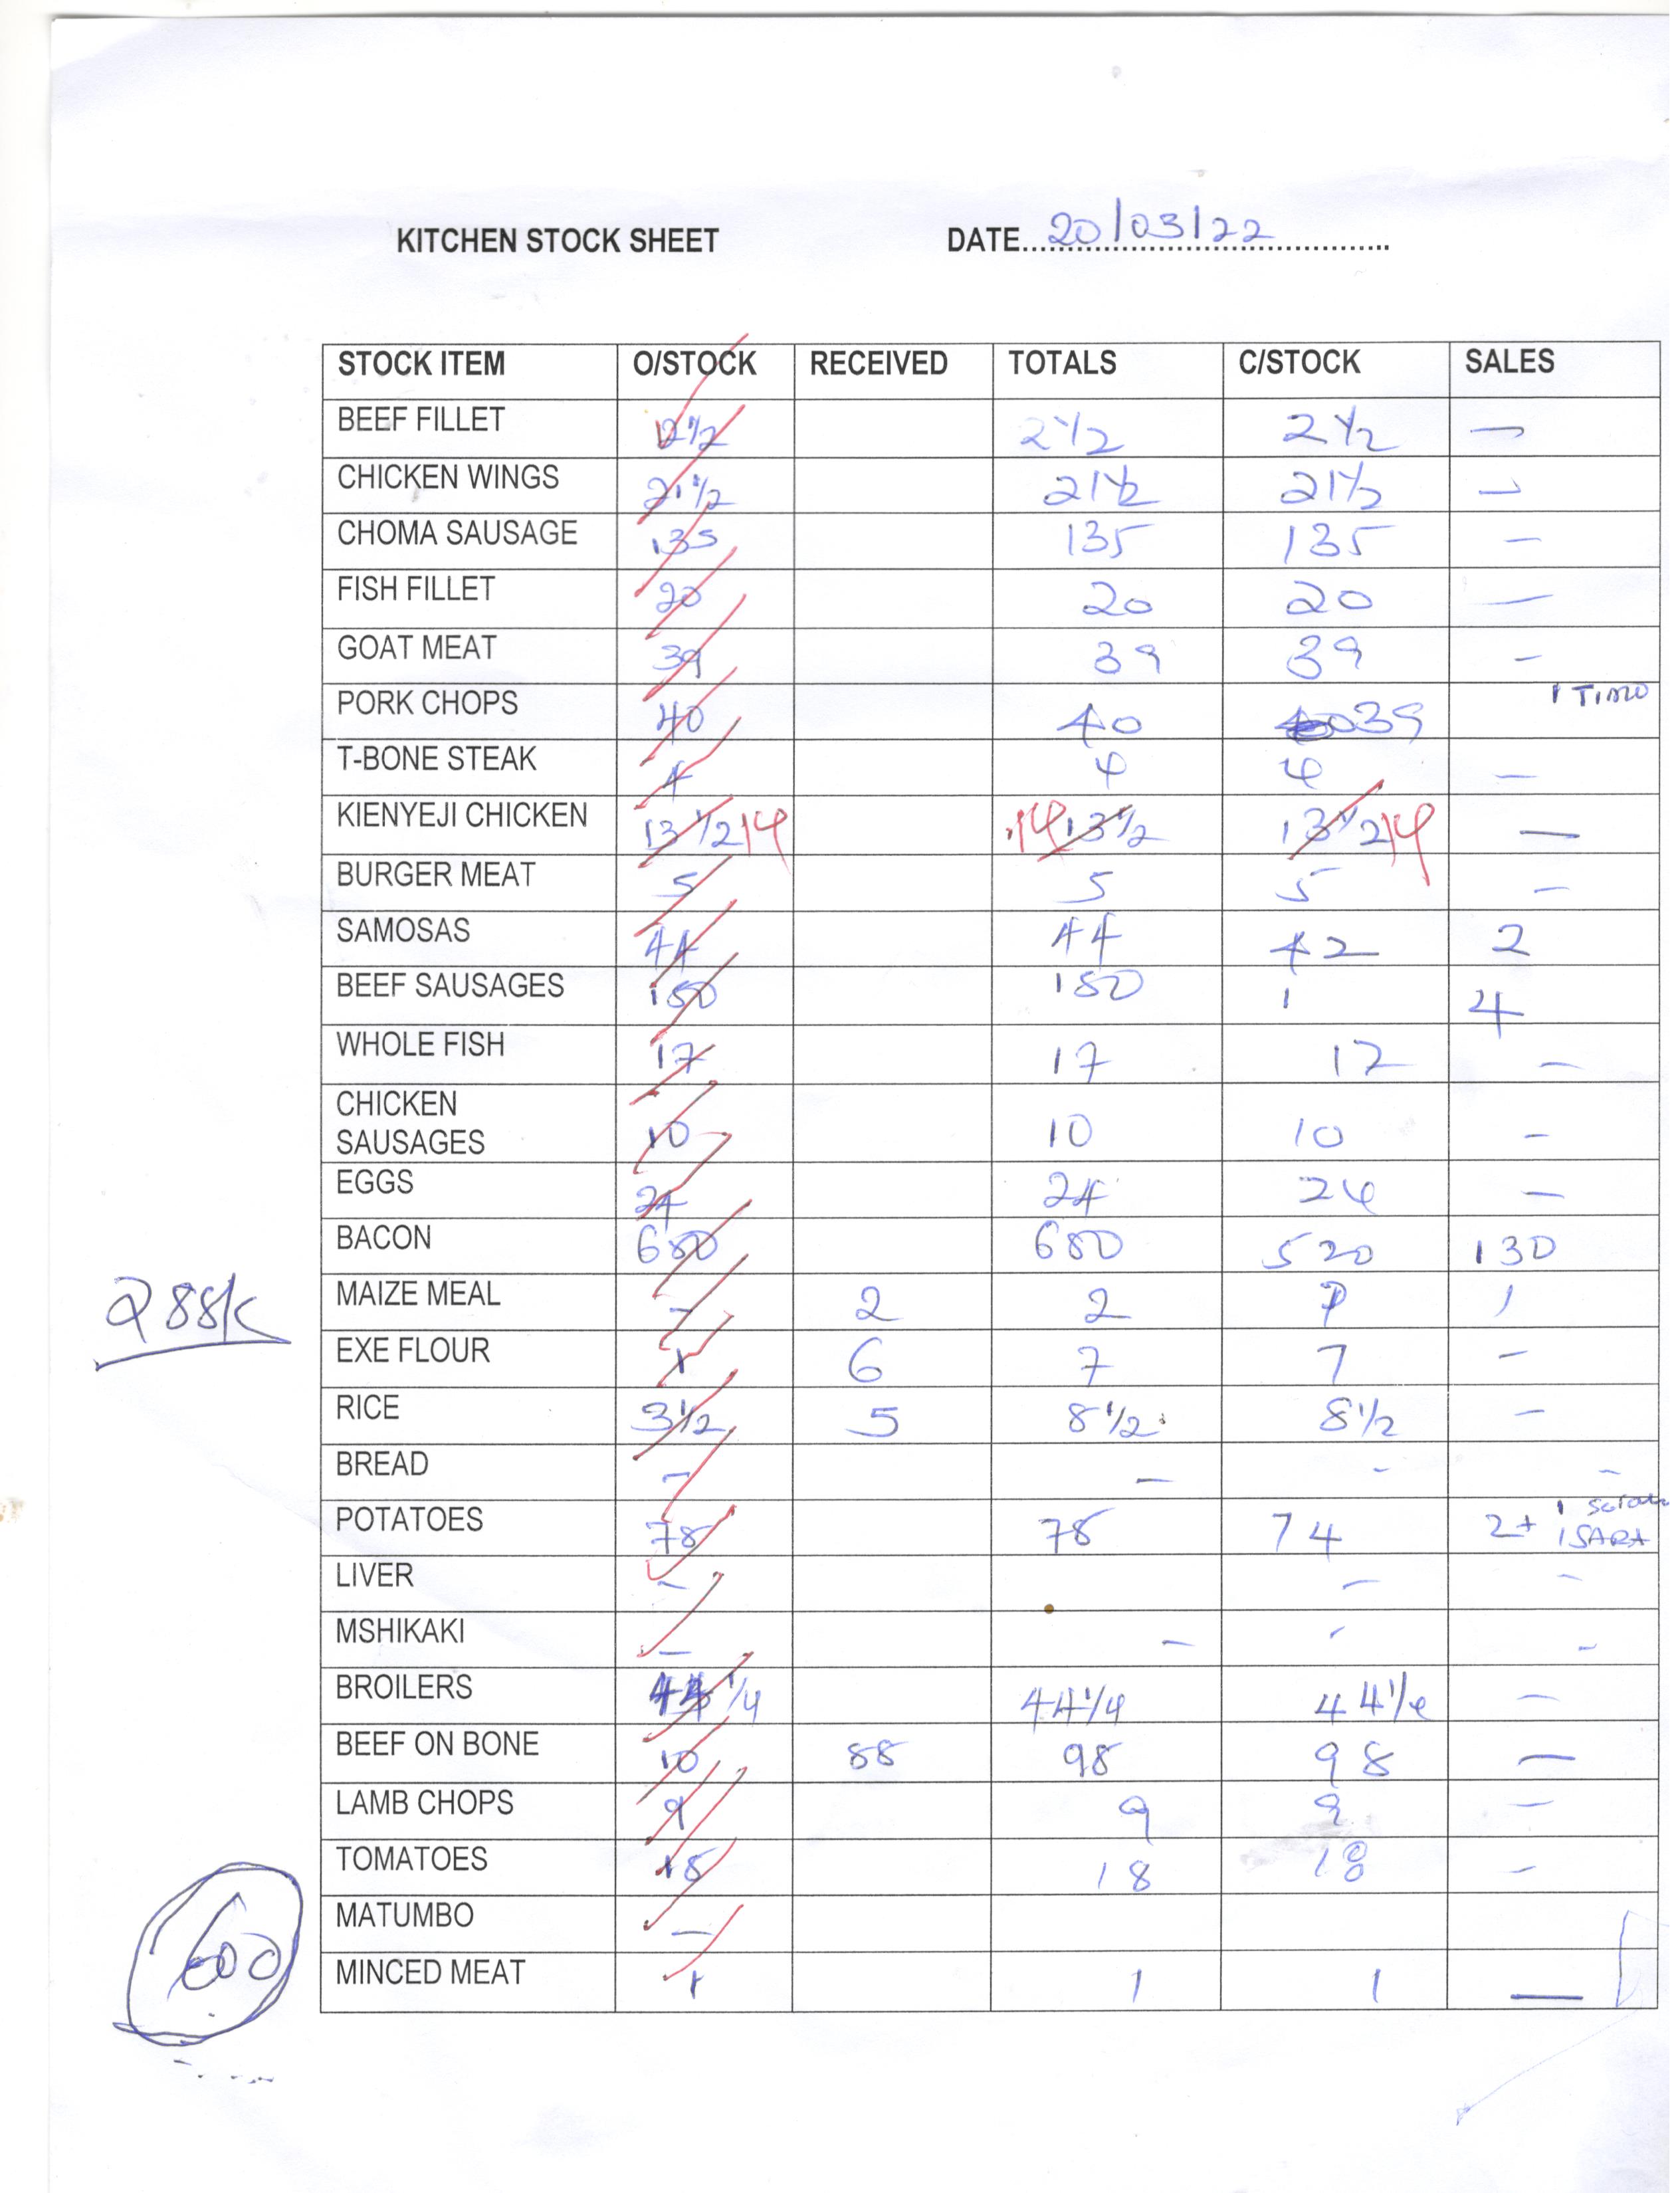 KITCHEN STOCK SHEET DATE 20/03/22
STOCK ITEM O/STOCK RECEIVED TOTALS C/STOCK SALES
BEEF FILLET 2 1/2 2 1/2 2 1/2 —
CHICKEN WINGS 21 1/2 21 1/2 21 1/2 —
CHOMA SAUSAGE 135 135 135 —
FISH FILLET 20 20 20 —
GOAT MEAT 39 39 39 —
PORK CHOPS 40 40 39 1 TIMO
T-BONE STEAK 4 4 4 —
KIENYEJI CHICKEN 13 1/2 14 14 13 1/2 13 1/2 14 —
BURGER MEAT 5 5 5 —
SAMOSAS 44 44 42 2
BEEF SAUSAGES 150 150 1 4
WHOLE FISH 17 17 17 —
CHICKEN SAUSAGES 10 10 10 —
EGGS 24 24 24 —
BACON 650 650 520 130
288K
MAIZE MEAL — 2 2 1
EXE FLOUR 1 6 7 7 —
RICE 3 1/2 5 8 1/2 8 1/2 —
BREAD — — - —
POTATOES 78 78 74 2+ 1 1 SARA
LIVER — — —
MSHIKAKI — — - -
BROILERS 44 1/4 44 1/4 44 1/4 —
BEEF ON BONE 10 88 98 98 —
LAMB CHOPS 9 9 9 —
TOMATOES 18 18 18 —
MATUMBO —
600
MINCED MEAT 1 1 1 —